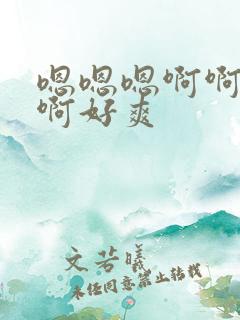 嗯嗯嗯啊啊
啊好爽
文苦曦
未经同意禁止转载